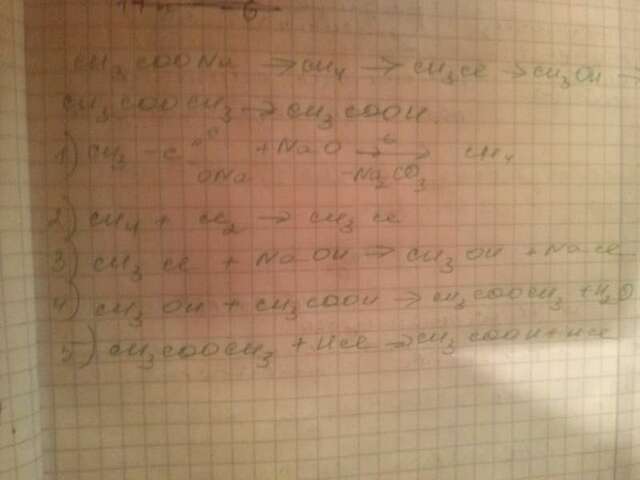 CH3COONa → CH4 → CH3Cl → CH3OH →
CH3COOCH3 → CH3COOH.
1) CH3 - C =O ONa + NaO → -Na2CO3 → CH4
2) CH4 + Cl2 → CH3Cl
3) CH3Cl + NaOH → CH3OH + NaCl
4) CH3OH + CH3COOH → CH3COOCH3 + H2O
5) CH3COOCH3 + HCl → CH3COOH + HCl